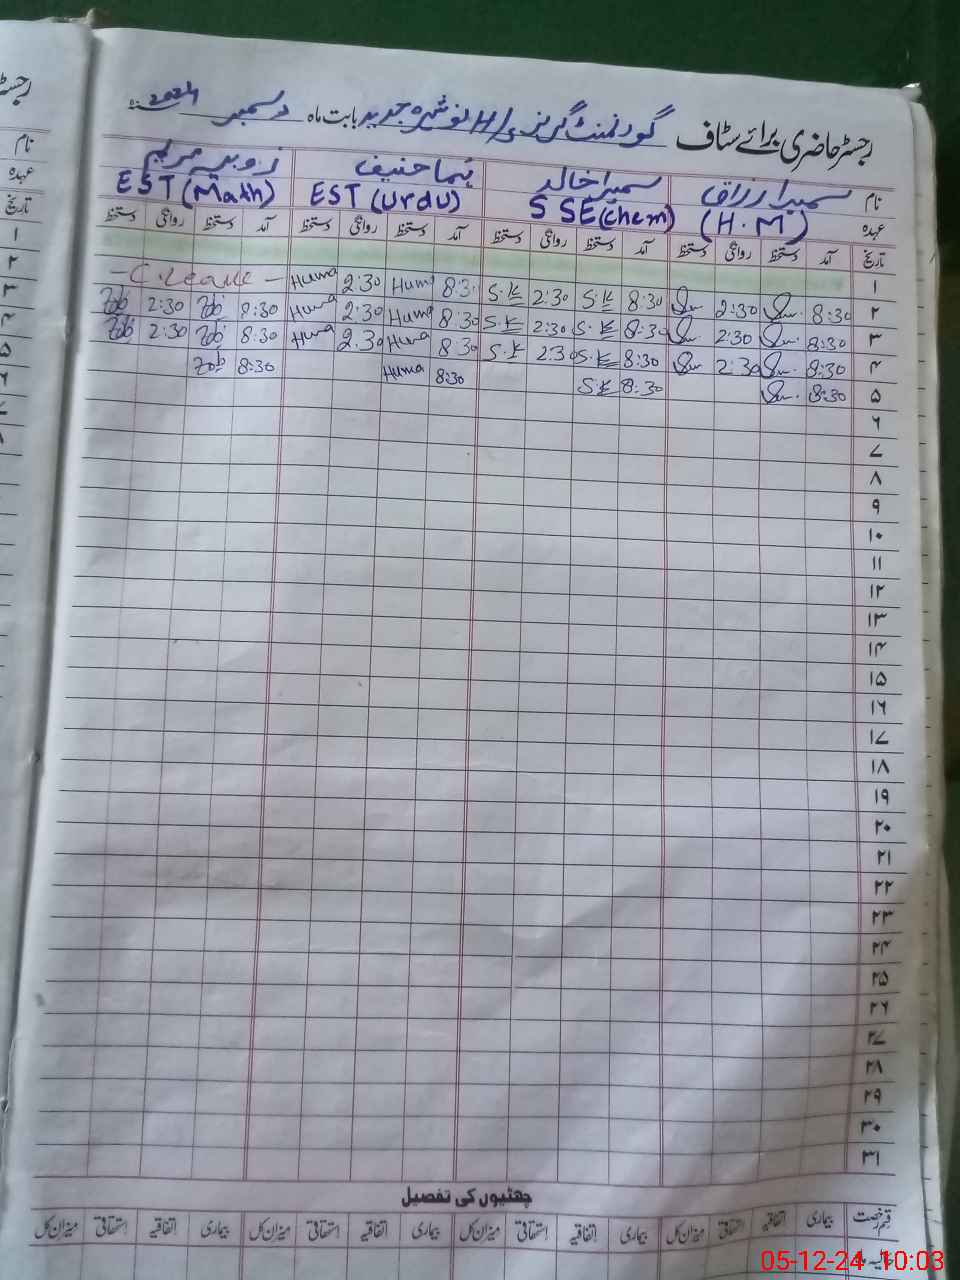 رجسٹر حاضری برائے سٹاف گورنمنٹ گرلز H/S نوشہرہ جدید بابت ماہ دسمبر 2024
نام سمیرا رزاق سمیرا خالد ہما حنیف زوبیہ مریم
عہدہ (H.M) SSE(Chem) EST (Urdu) EST (Math)
تاریخ آمد دستخط روانگی دستخط آمد دستخط روانگی دستخط آمد دستخط روانگی دستخط آمد دستخط روانگی دستخط
۱
۲ 8:30 2:30 8:30 S.K 2:30 S.K 8:30 Huma 2:30 Huma - C. Leave -
۳ 8:30 2:30 8:30 S.K 2:30 S.K 8:30 Huma 2:30 Huma 8:30 Zob 2:30 Zob
۴ 8:30 2:30 8:30 S.K 2:30 S.K 8:30 Huma 2:30 Huma 8:30 Zob 2:30 Zob
۵ 8:30 8:30 S.K 8:30 Huma 8:30 Zob
۶
۷
۸
۹
۱۰
۱۱
۱۲
۱۳
۱۴
۱۵
۱۶
۱۷
۱۸
۱۹
۲۰
۲۱
۲۲
۲۳
۲۴
۲۵
۲۶
۲۷
۲۸
۲۹
۳۰
۳۱
چھٹیوں کی تفصیل
قسم رخصت بیماری اتفاقیہ استحقاقی میزان کل بیماری اتفاقیہ استحقاقی میزان کل بیماری اتفاقیہ استحقاقی میزان کل بیماری اتفاقیہ استحقاقی میزان کل
حالیہ ماہ
05-12-24 10:03